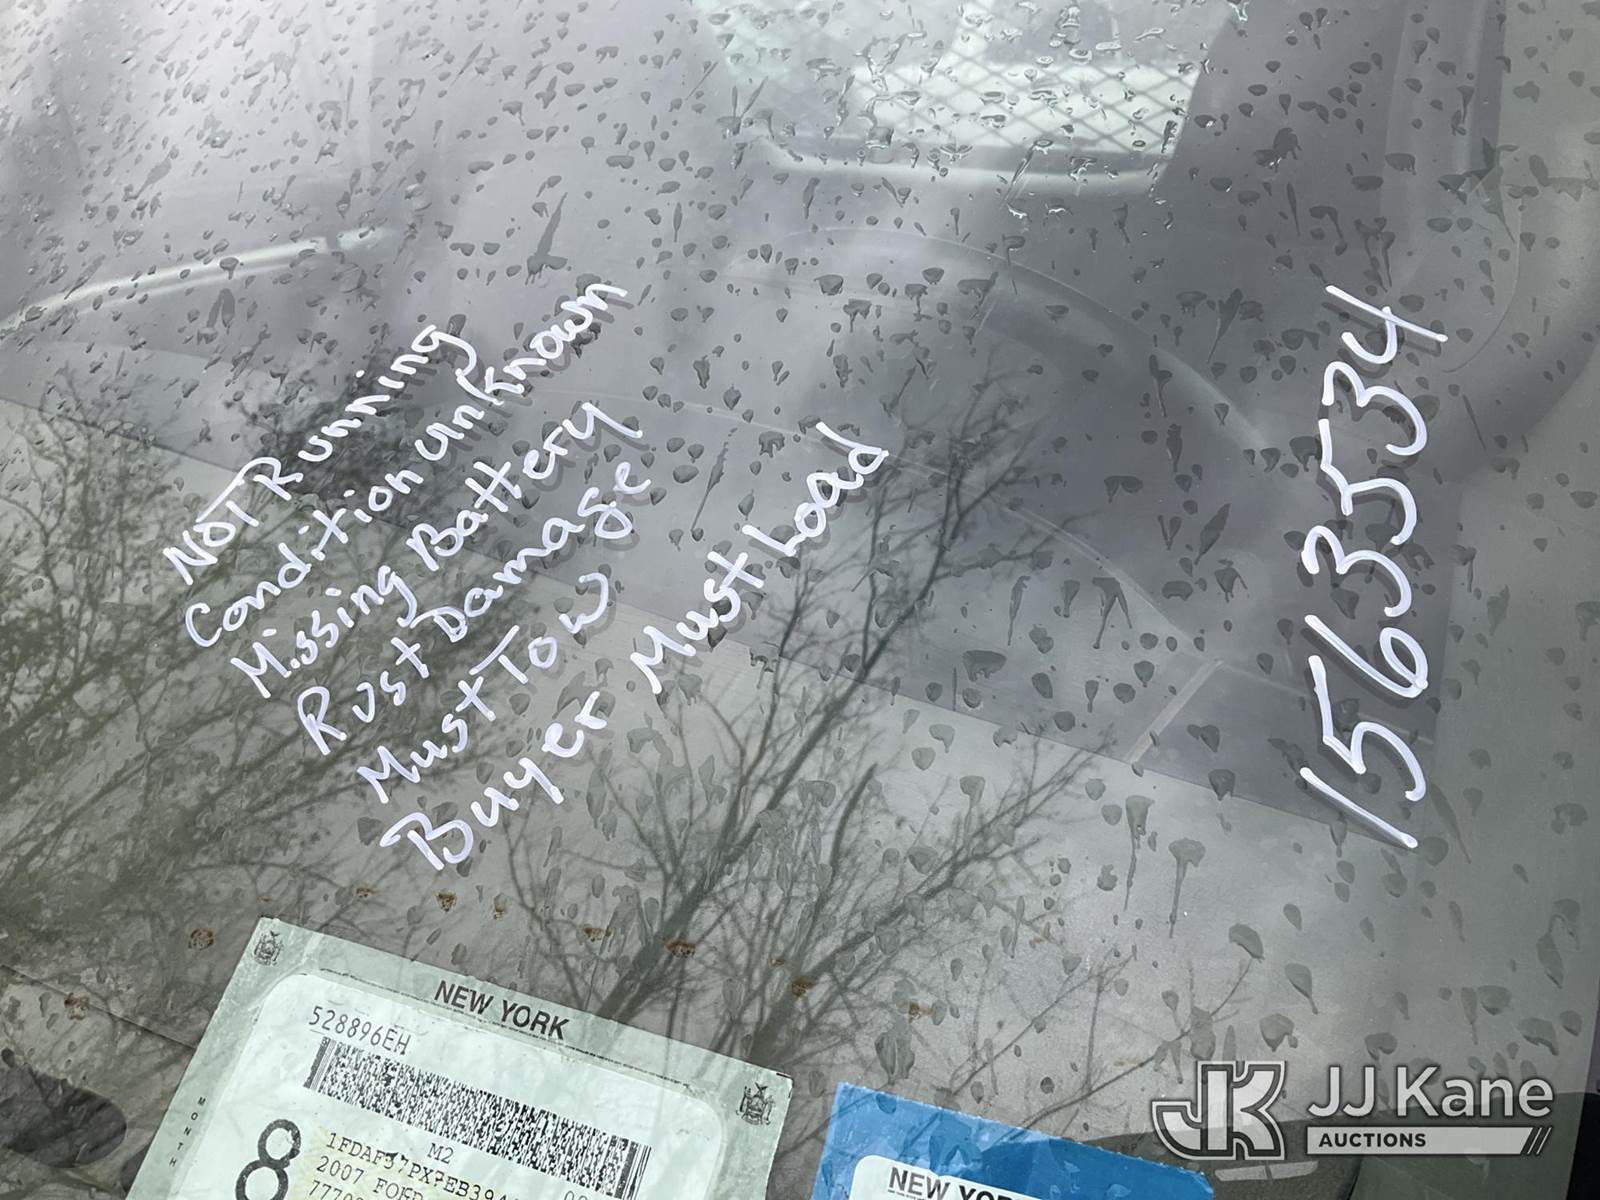 NOT Running
Condition unknown
Missing Battery
Rust Damage
Must Tow
Buyer Must Load
1563534
NEW YORK
528896EH
M2
MONTH
8
2007 FORD
NEW YOR
JK JJ Kane
AUCTIONS